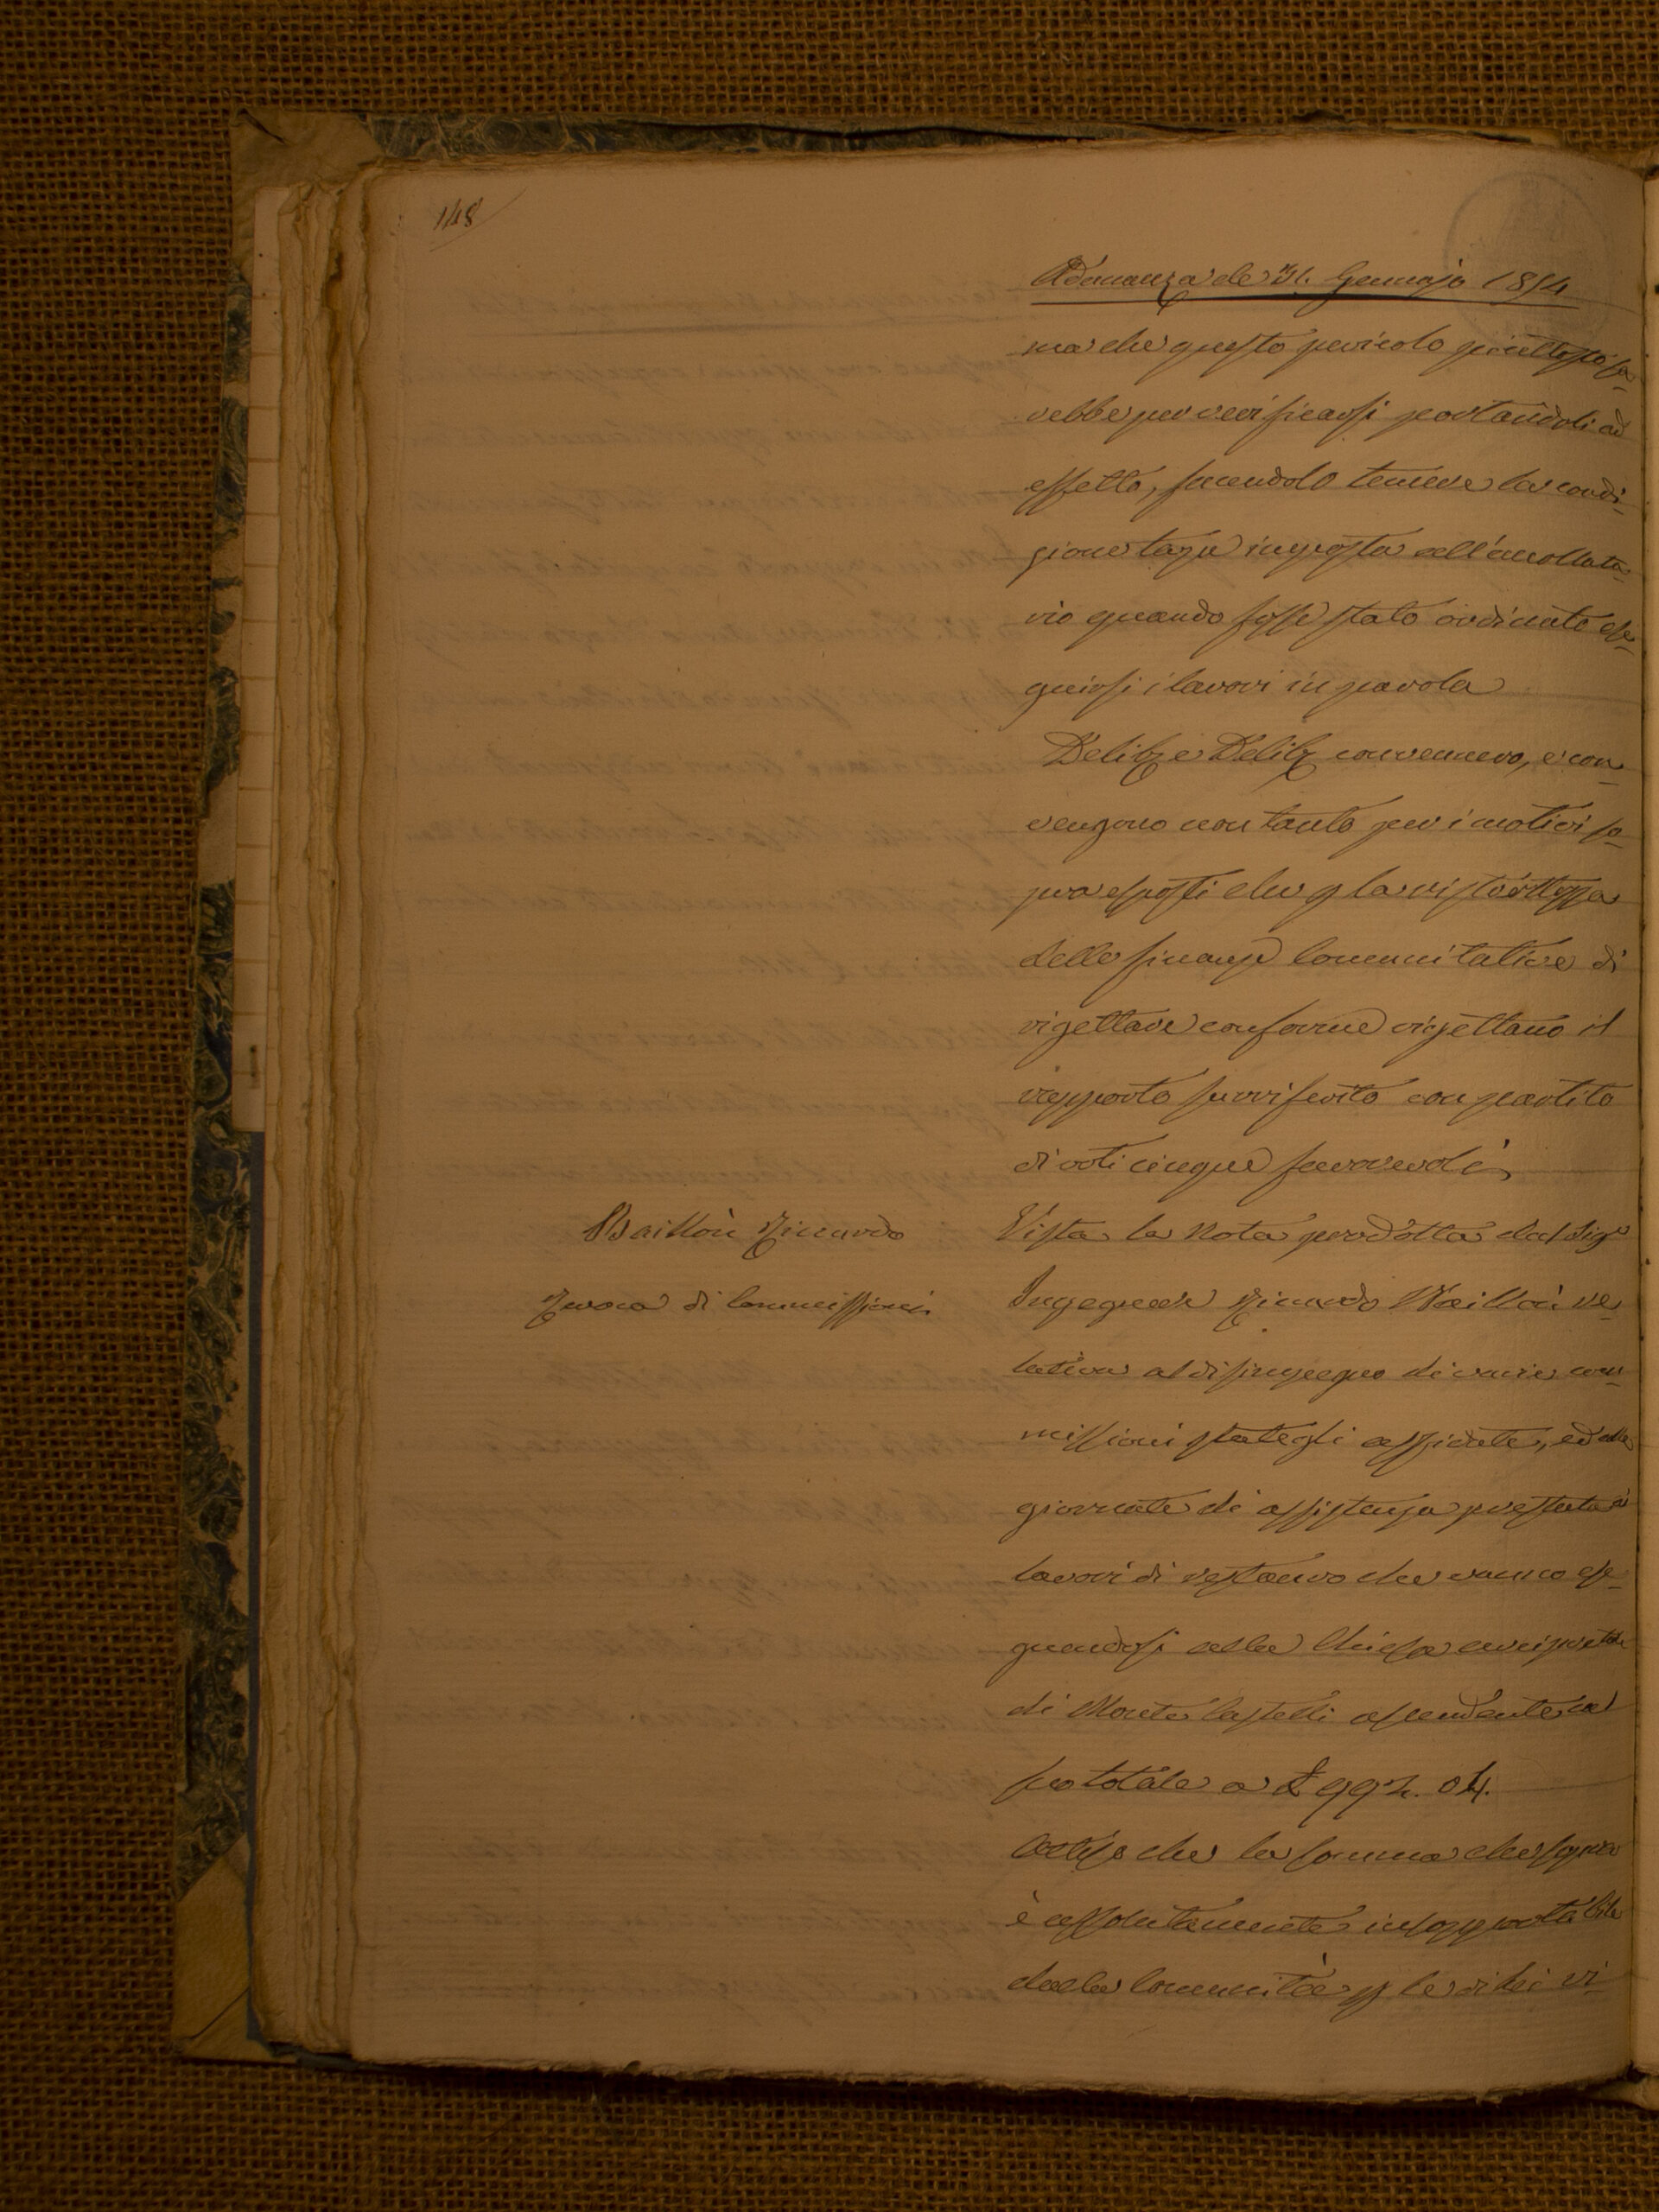 148
Adunanza de 31. Gennajo 1854
ma che questo pericolo piuttosto sa-
rebbe per verificarsi portandoli ad
effetto, facendolo temere la condi-
zione imposta all'accollata-
rio quando fosse stato ordinato ese-
guirsi i lavori in parola
Delib: e Delib: convennero, e con-
vengono non tanto per i motivi so-
pra esposti che p la ristrettezza
delle finanze Comunitative di
rigettare conforme rigettano il
rapporto surriferito con partito
di voti cinque favorevoli
Baillou Riccardo
di Commissioni
Vista la Nota prodotta dal Sig.e
Ingegnere Riccardo Baillou re-
lativa al disimpegno di varie com-
missioni stategli affidate, ed alle
giornate di assistenza prestata ai
lavori di restauro che vanno ese-
guendosi alla Chiesa arcipretale
di Monte Castelli ascendente nel
suo totale a £ 992. 04.
Atteso che la somma che sopra
è assolutamente insopportabile
dalla Comunità p le di lei ri-